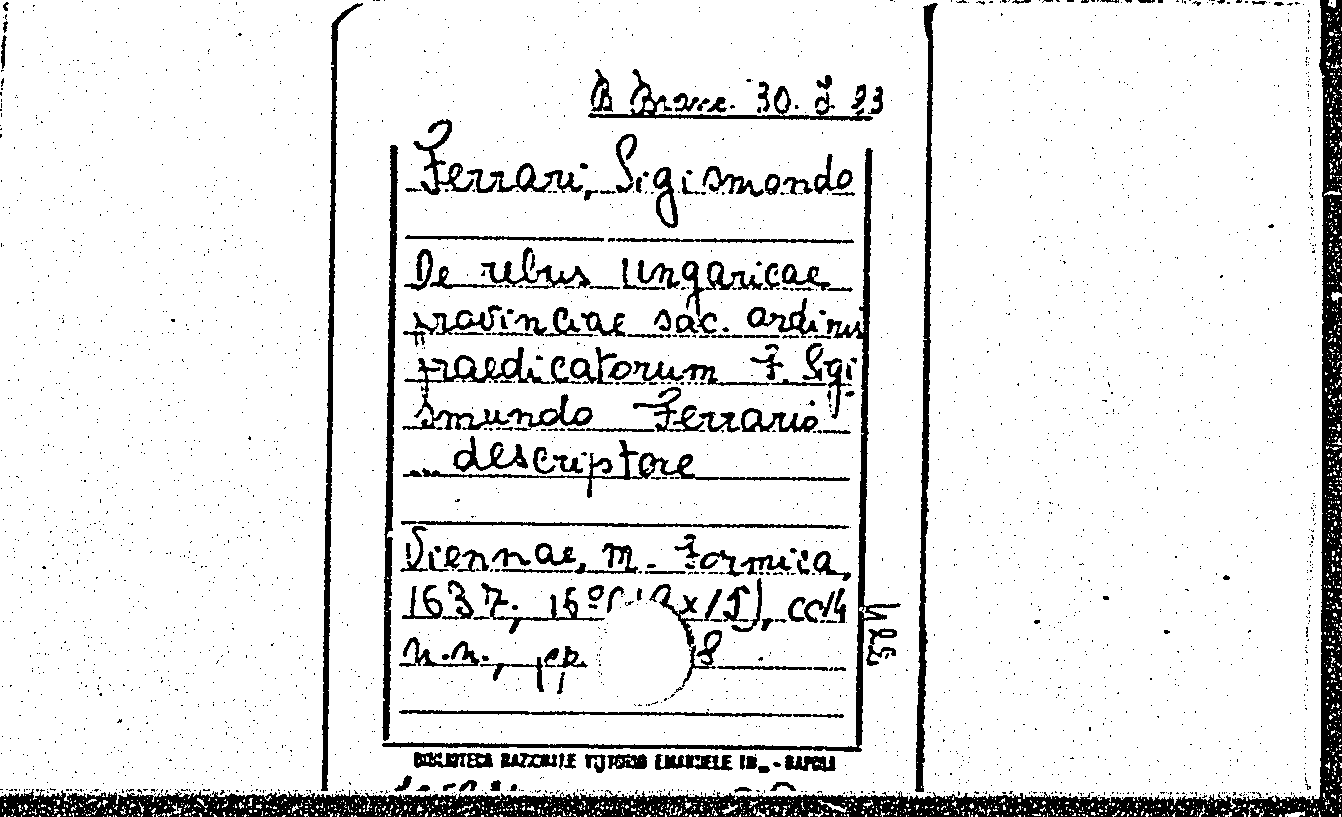 B Branc. 30. J 23
Ferrari, Sigismondo
De rebus Ungaricae
provinciae sac. ordinis
praedicatorum F. Sigi
smundo Ferrario
... descriptore
Viennae, M. Formica,
1637; 16º x15), cc14
n.n., pp. 8
BIBLIOTECA NAZIONALE VITTORIO EMANUELE III - NAPOLI